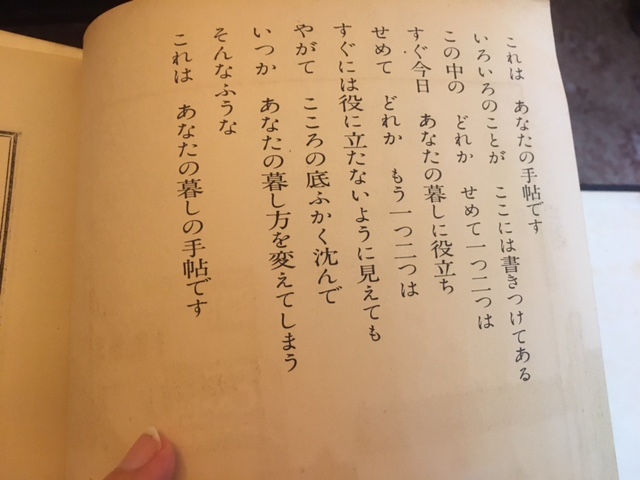 これは　あなたの手帖です
いろいろのことが　ここには書きつけてある
この中の　どれか　せめて一つ二つは
すぐ今日　あなたの暮しに役立ち
せめて　どれか　もう一つ二つは
すぐには役に立たないように見えても
やがて　こころの底ふかく沈んで
いつか　あなたの暮し方を変えてしまう
そんなふうな
これは　あなたの暮しの手帖です